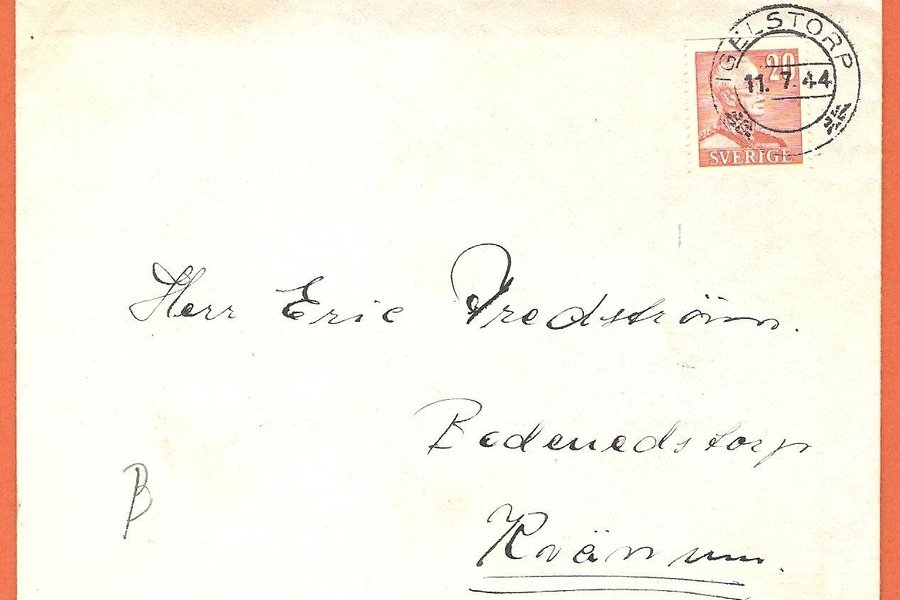 IGELSTORP
20
11. 7. 44
SVERIGE
Herr Eric Fredström.
Bedenedstorp
Kvänum.
B